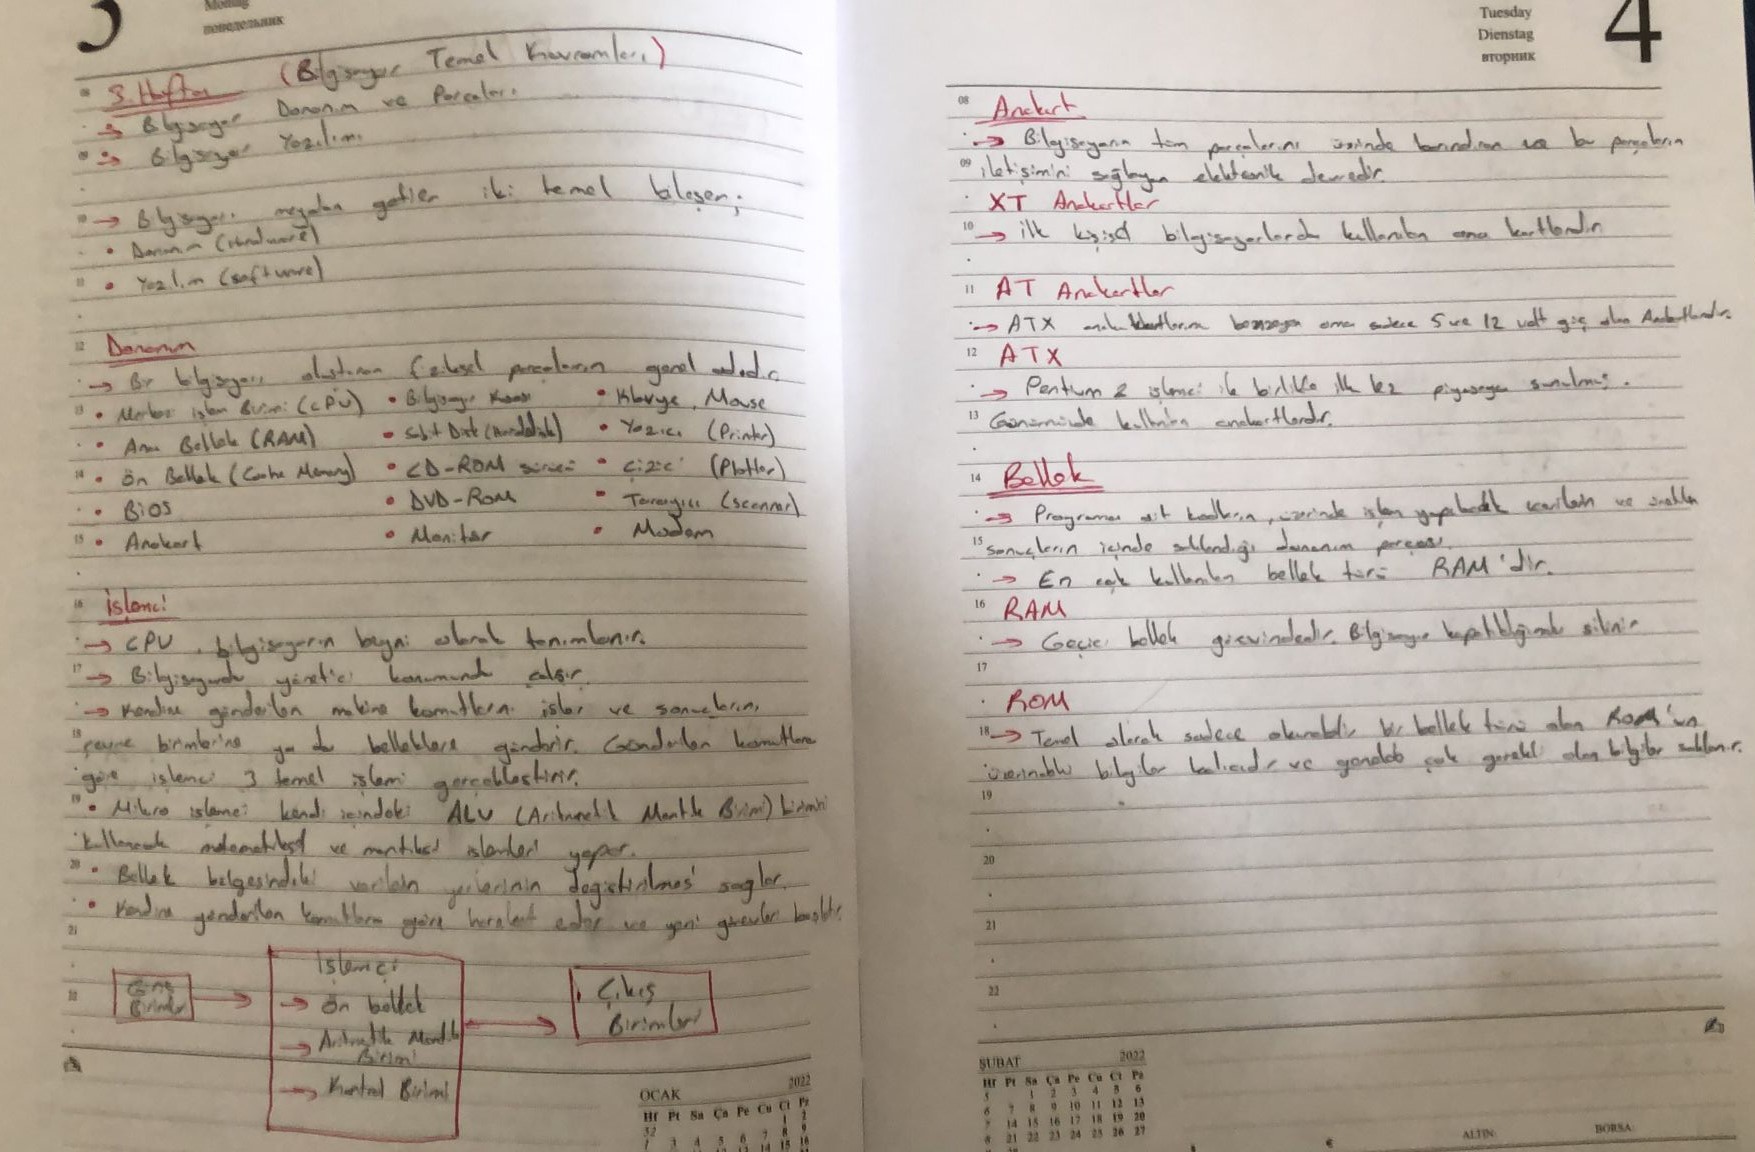 3
Montag
понедельник
3. Hafta (Bilgisayar Temel Kavramları)
→ Bilgisayar Donanım ve Parçaları
→ Bilgisayar Yazılımı
→ Bilgisayarı meydana getiren iki temel bileşen;
• Donanım (Hardware)
• Yazılım (software)
12 Donanım
→ Bir bilgisayarı oluşturan fiziksel parçaların genel adıdır.
13 • Merkezi işlem Birimi (CPU) • Bilgisayar Kasası • Klavye, Mouse
• Ana Bellek (RAM) • Sabit Disk (Harddisk) • Yazıcı (Printer)
14 • Ön Bellek (Cache Memory) • CD-ROM sürücü • Çizici (Plotter)
• BiOS • DVD-ROM • Tarayıcı (scanner)
15 • Anakart • Monitör • Modem
16 İşlemci
→ CPU, bilgisayarın beyni olarak tanımlanır.
17 → Bilgisayarda yönetici konumunda çalışır.
→ Kendine gönderilen makine komutlarını işler ve sonuçlarını,
18 çevre birimlerine ya da belleklere gönderir. Gönderilen komutlara
göre işlemci 3 temel işlemi gerçekleştirir.
19 • Mikro işlemci kendi içindeki ALU (Aritmetik Mantık Birimi) birimini
kullanarak matematiksel ve mantıksal işlemleri yapar.
20 • Bellek bölgesindeki verilerin yerlerinin değiştirilmesi sağlar.
• Kendine gönderilen komutlara göre hareket eder ve yeni görevler
21
22
Giriş
Birimleri
İşlemci
→ Ön bellek
→ Aritmetik Mantık
Birimi
→ Kontrol Birimi
Çıkış
Birimleri
OCAK 2022
Hf Pt Sa Ça Pe Cu Ct Pz
52 1 2
1 3 4 5 6 7 8 9
Tuesday
Dienstag
вторник
4
08 Anakart
→ Bilgisayarın tüm parçalarını üzerinde barındıran ve bu parçaların
09 iletişimini sağlayan elektronik devredir.
XT Anakartlar
10 → ilk kişisel bilgisayarlarda kullanılan ana kartlardır
11 AT Anakartlar
→ ATX benzeyen ama sadece 5 ve 12 volt güç alan Anakartlardır.
12 ATX
→ Pentium 2 işlemci ile birlikte ilk kez piyasaya sunulmuş.
13 Günümüzde kullanılan anakartlardır.
14 Bellek
→ Programa ait kodların, üzerinde işlem yapılacak verilerin ve
15 sonuçların içinde saklandığı donanım parçası.
→ En çok kullanılan bellek türü RAM'dir.
16 RAM
→ Geçici bellek görevindedir. Bilgisayar kapatıldığında silinir
17
ROM
18 → Temel olarak sadece okunabilir bir bellek türü olan ROM'un
üzerindeki bilgiler kalıcıdır ve genelde çok gerekli olan bilgiler saklanır.
19
20
21
22
ŞUBAT 2022
Hf Pt Sa Ça Pe Cu Ct Pz
5 1 2 3 4 5 6
6 7 8 9 10 11 12 13
7 14 15 16 17 18 19 20
8 21 22 23 24 25 26 27
€
ALTIN:
BORSA: